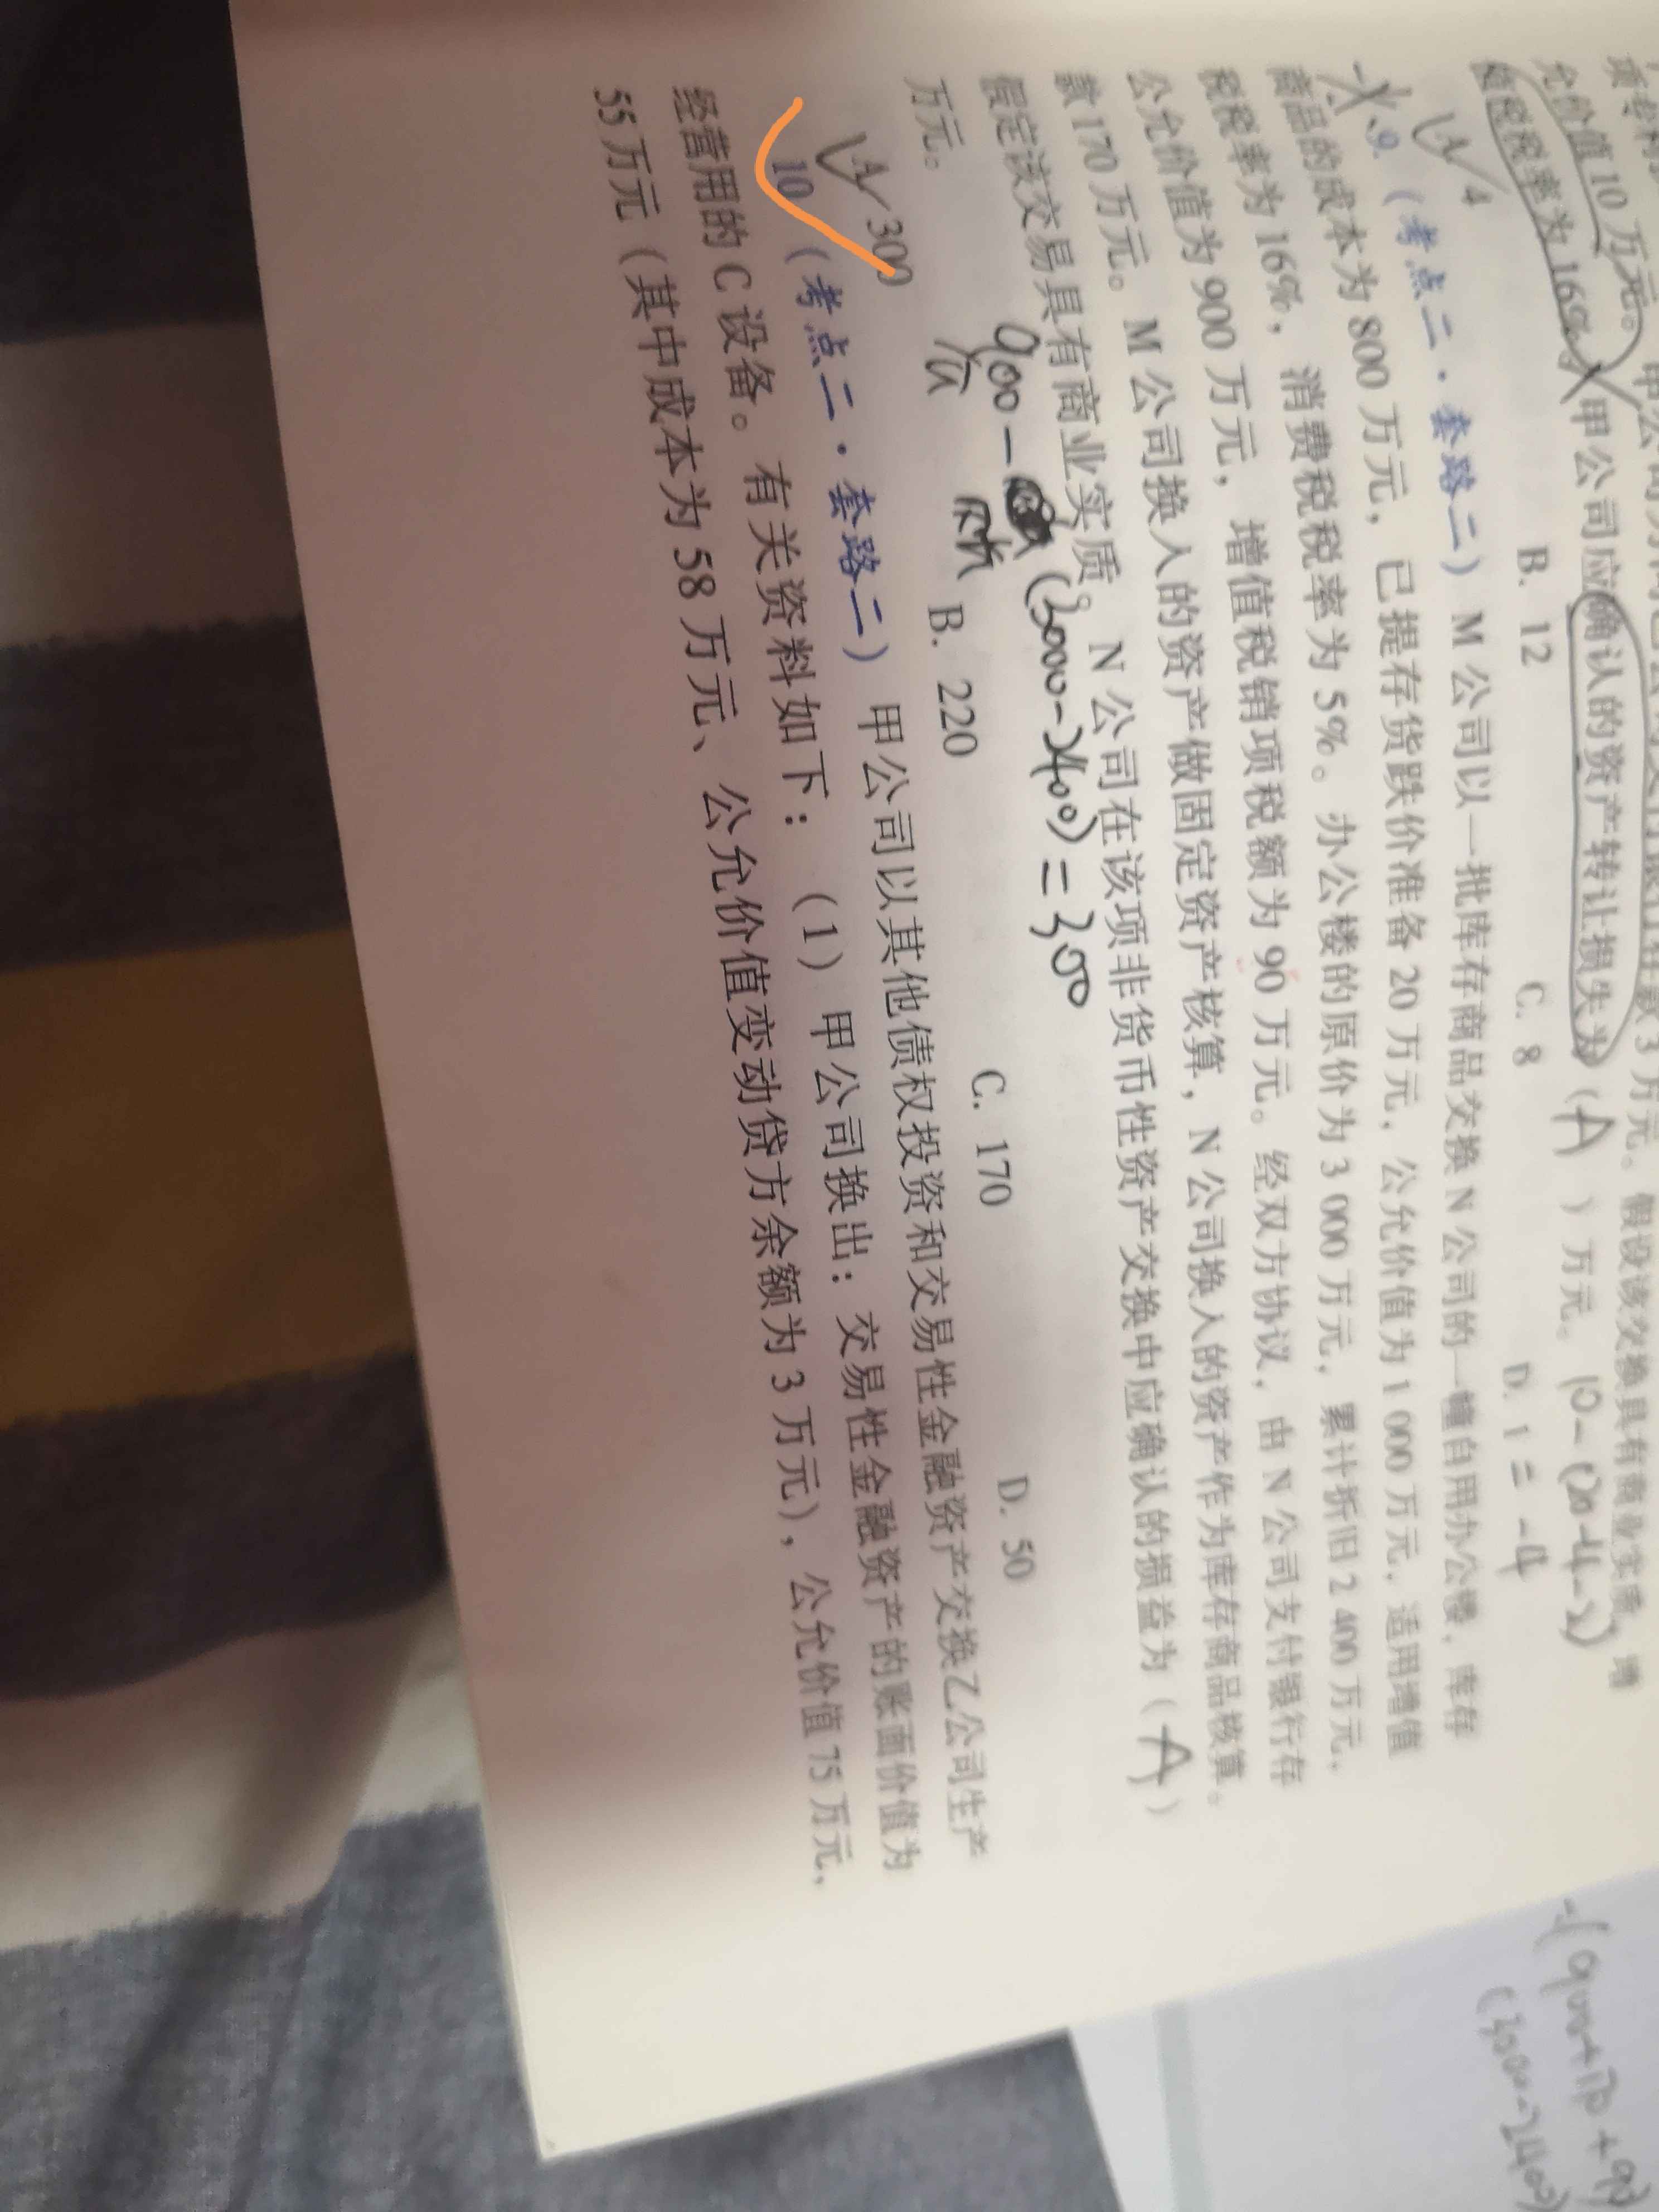 允价值10万元。
值税税率为16%。甲公司应确认的资产转让损失为(A)万元。 10-(20-4-2)
A. 4 B. 12 C. 8 D. 1 = -4
9. (考点二·套路二) M公司以一批库存商品交换N公司的一幢自用办公楼,库存
商品的成本为800万元,已提存货跌价准备20万元,公允价值为1 000万元,适用增值
税税率为16%,消费税税率为5%。办公楼的原价为3 000万元,累计折旧2 400万元,
公允价值为900万元,增值税销项税额为90万元。经双方协议,由N公司支付银行存
款170万元。M公司换入的资产做固定资产核算,N公司换入的资产作为库存商品核算。
假定该交易具有商业实质,N公司在该项非货币性资产交换中应确认的损益为(A)
万元。
900- (3000-2400)=300
A. 300 B. 220 C. 170 D. 50
10. (考点二·套路二) 甲公司以其他债权投资和交易性金融资产交换乙公司生产
经营用的C设备。有关资料如下:(1)甲公司换出:交易性金融资产的账面价值为
55万元(其中成本为58万元、公允价值变动贷方余额为3万元),公允价值75万元,
-(900+170+90)
(3000-2400)